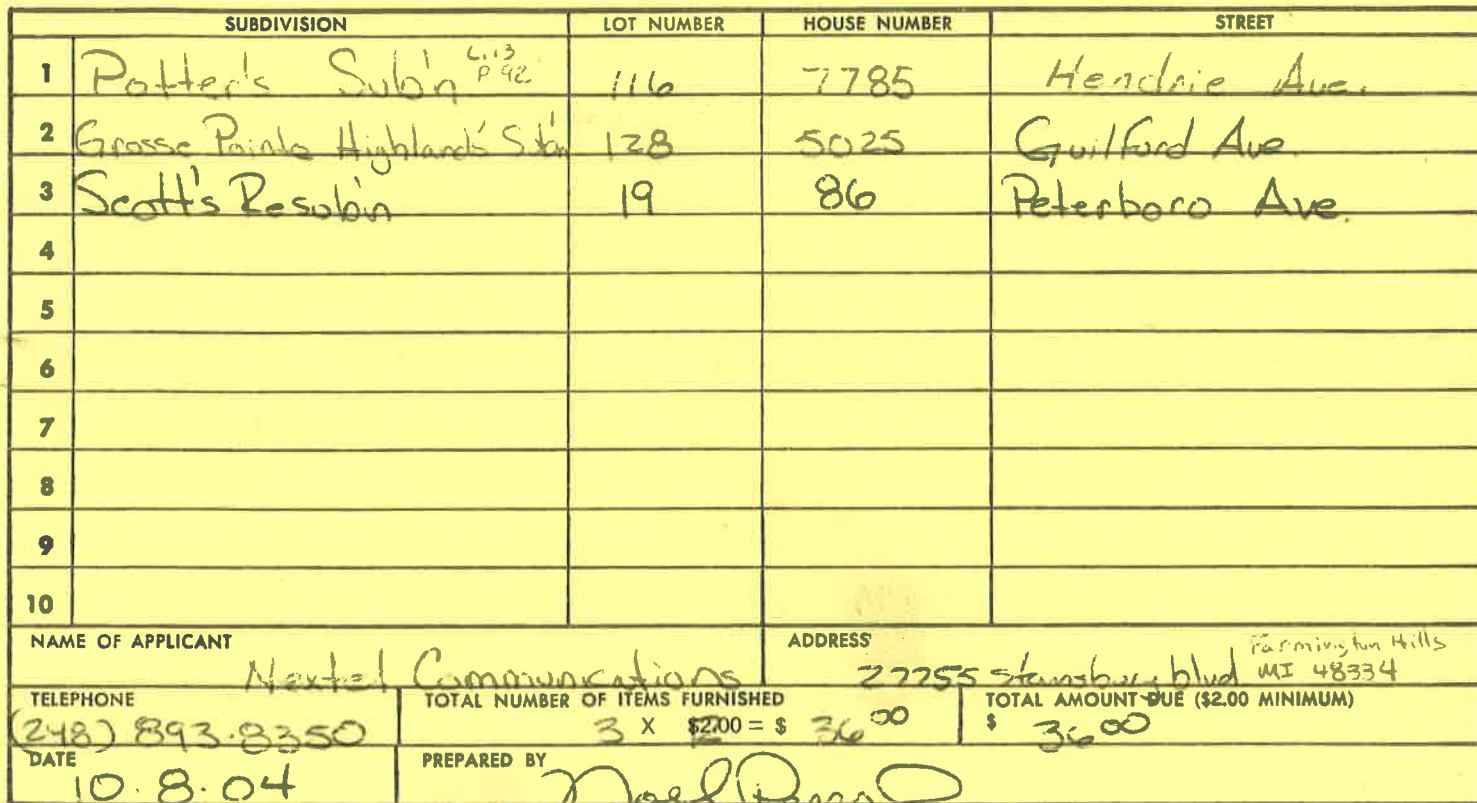 SUBDIVISION LOT NUMBER HOUSE NUMBER STREET
1 Potter's Sub'n L.13 P 92 116 7785 Hendrie Ave.
2 Grosse Pointe Highland's Sub'n 128 5025 Guilford Ave.
3 Scott's Resub'n 19 86 Peterboro Ave.
4
5
6
7
8
9
10
NAME OF APPLICANT ADDRESS
Nextel Communications 27755 Stansbury blvd Farmington Hills MI 48334
TELEPHONE TOTAL NUMBER OF ITEMS FURNISHED TOTAL AMOUNT DUE ($2.00 MINIMUM)
(248) 893.8350 3 X $2.00 = $ 36 00 $ 36 00
DATE PREPARED BY
10.8.04 Noel